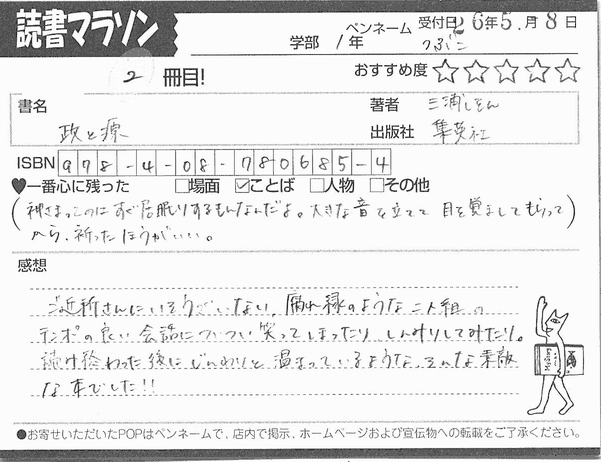 読書マラソン
学部 1年 ペンネーム つぶこ 受付日26年5月8日
2冊目!
おすすめ度☆☆☆☆☆
書名 政と源
著者 三浦しをん
出版社 集英社
ISBN 978-4-08-780685-4
♥一番心に残った □場面 ☑ことば □人物 □その他
(神さまってのはすぐ居眠りするもんなんだよ。大きな音を立てて目を覚ましてもらって
から、祈ったほうがいい。)
感想
ご近所さんにいそうでいない、腐れ縁のような二人組の
テンポの良い会話についつい笑ってしまったり しんみりしてみたり。
読み終わった後にじんわりと温まっているような、そんな素敵
な本でした!!
●お寄せいただいたPOPはペンネームで、店内で掲示、ホームページおよび宣伝物への転載をご了承ください。